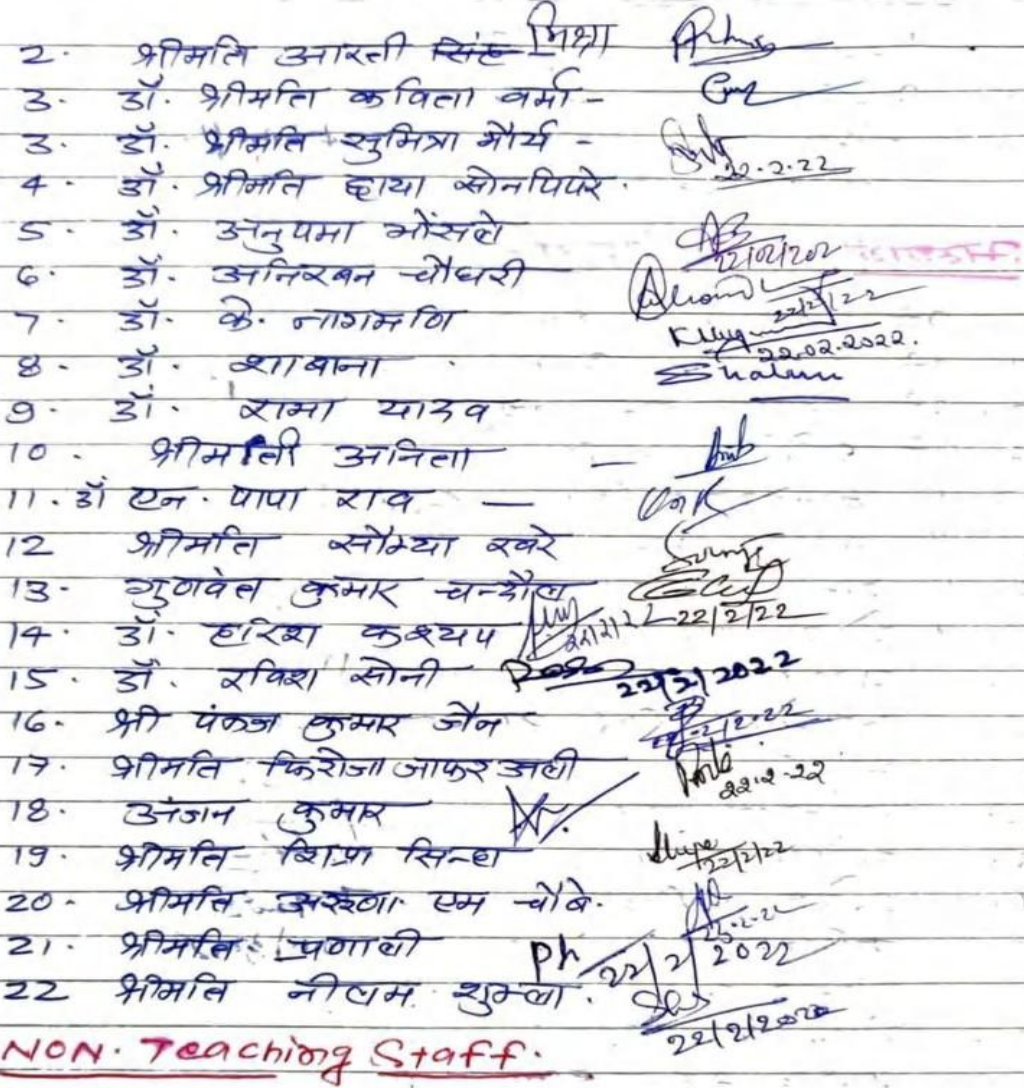 2. श्रीमति आरती सिंह मिश्रा
3. डॉ. श्रीमति कविता वर्मा -
3. डॉ. श्रीमति सुमित्रा मौर्य - 22.2.22
4. डॉ. श्रीमति छाया सोनपिपरे.
5. डॉ. अनुपमा भोंसले 22/02/202
6. डॉ. अनिरबन चौधरी 22/2/22
7. डॉ. के. नागमणि 22.02.2022.
8. डॉ. शाबाना
9. डॉ. रामा यादव
10. श्रीमती अनिता -
11. डॉ एन. पापा राव -
12 श्रीमति सौम्या खरे
13. गुणवंत कुमार चन्दौल 22/2/22
14. डॉ. हरिश कश्यप 22/2/22
15. डॉ. रविश सोनी 22/2/2022
16. श्री पंकज कुमार जैन 22-2-22
17. श्रीमति फिरोजा जाफर अली 22.2-22
18. अंजान कुमार
19. श्रीमति शिप्रा सिन्हा 22/2/22
20. श्रीमति अरूणा एम चौबे.
21. श्रीमति प्रणाली Ph 22/2/2022
22 श्रीमति नीलम शुक्ला. 22/2/2022
NON. Teaching Staff.